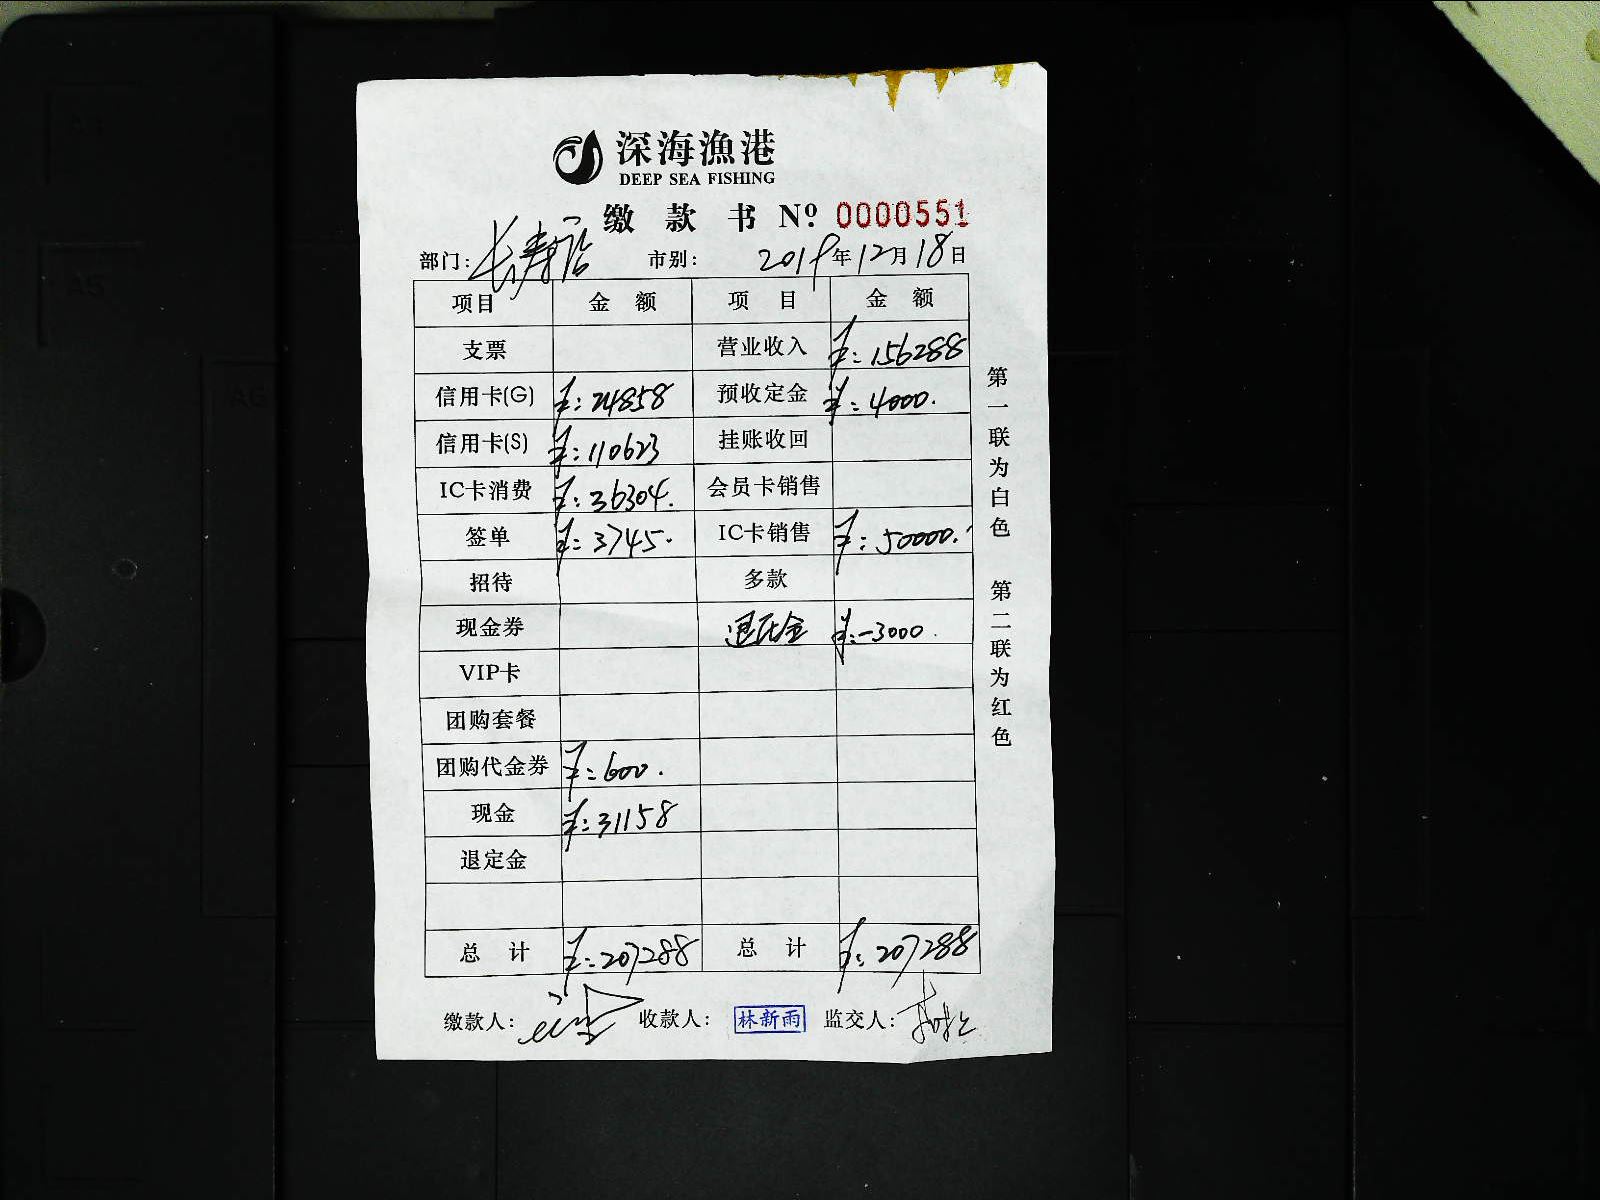 深海渔港
DEEP SEA FISHING
缴款书 Nº 0000551
部门：长寿店 市别： 2019年12月18日
项目 金额 项目 金额
支票 营业收入 ¥：156288
信用卡(G) ¥：24858 预收定金 ¥：4000.
信用卡(S) ¥：110623 挂账收回
IC卡消费 ¥：36304. 会员卡销售
签单 ¥：3745. IC卡销售 ¥：50000.
招待 多款
现金券 退定金 ¥：-3000.
VIP卡
团购套餐
团购代金券 ¥：600.
现金 ¥：31158
退定金
总计 ¥：207288 总计 ¥：207288
缴款人： 收款人：林新雨 监交人：
第一联为白色 第二联为红色